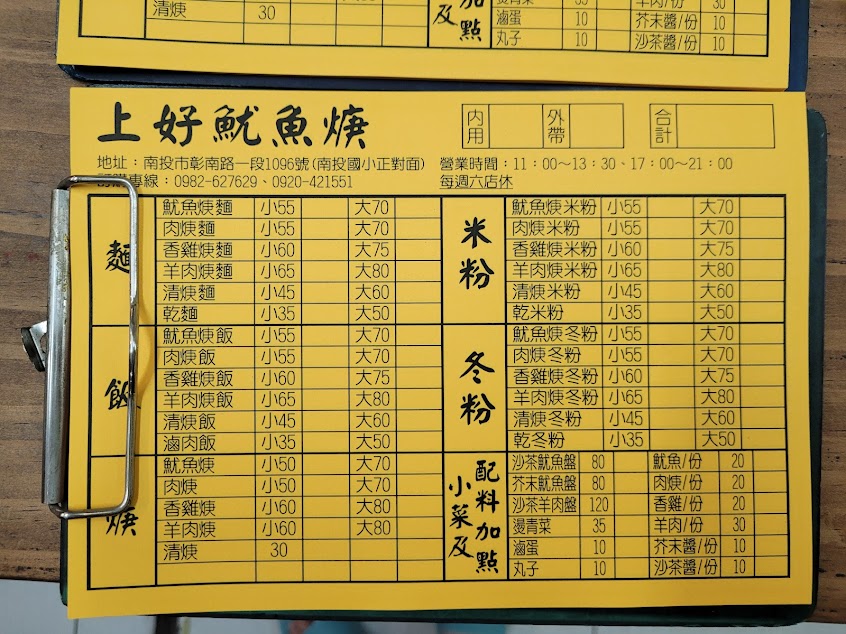 清焿 30
加點
及
燙青菜 35 羊肉/份 30
滷蛋 10 芥末醬/份 10
丸子 10 沙茶醬/份 10
上好魷魚焿
內用 外帶 合計
地址：南投市彰南路一段1096號(南投國小正對面) 營業時間：11：00～13：30、17：00～21：00
訂購專線：0982-627629、0920-421551 每週六店休
麵
魷魚焿麵 小55 大70
肉焿麵 小55 大70
香雞焿麵 小60 大75
羊肉焿麵 小65 大80
清焿麵 小45 大60
乾麵 小35 大50
飯
魷魚焿飯 小55 大70
肉焿飯 小55 大70
香雞焿飯 小60 大75
羊肉焿飯 小65 大80
清焿飯 小45 大60
滷肉飯 小35 大50
焿
魷魚焿 小50 大70
肉焿 小50 大70
香雞焿 小60 大80
羊肉焿 小60 大80
清焿 30
米粉
魷魚焿米粉 小55 大70
肉焿米粉 小55 大70
香雞焿米粉 小60 大75
羊肉焿米粉 小65 大80
清焿米粉 小45 大60
乾米粉 小35 大50
冬粉
魷魚焿冬粉 小55 大70
肉焿冬粉 小55 大70
香雞焿冬粉 小60 大75
羊肉焿冬粉 小65 大80
清焿冬粉 小45 大60
乾冬粉 小35 大50
小菜及
配料加點
沙茶魷魚盤 80 魷魚/份 20
芥末魷魚盤 80 肉焿/份 20
沙茶羊肉盤 120 香雞/份 20
燙青菜 35 羊肉/份 30
滷蛋 10 芥末醬/份 10
丸子 10 沙茶醬/份 10